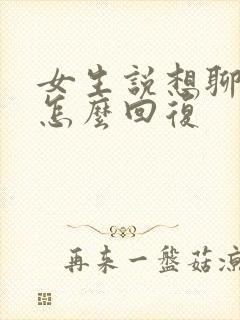 女生説想聊
怎麼回復
再来一盤菇凉